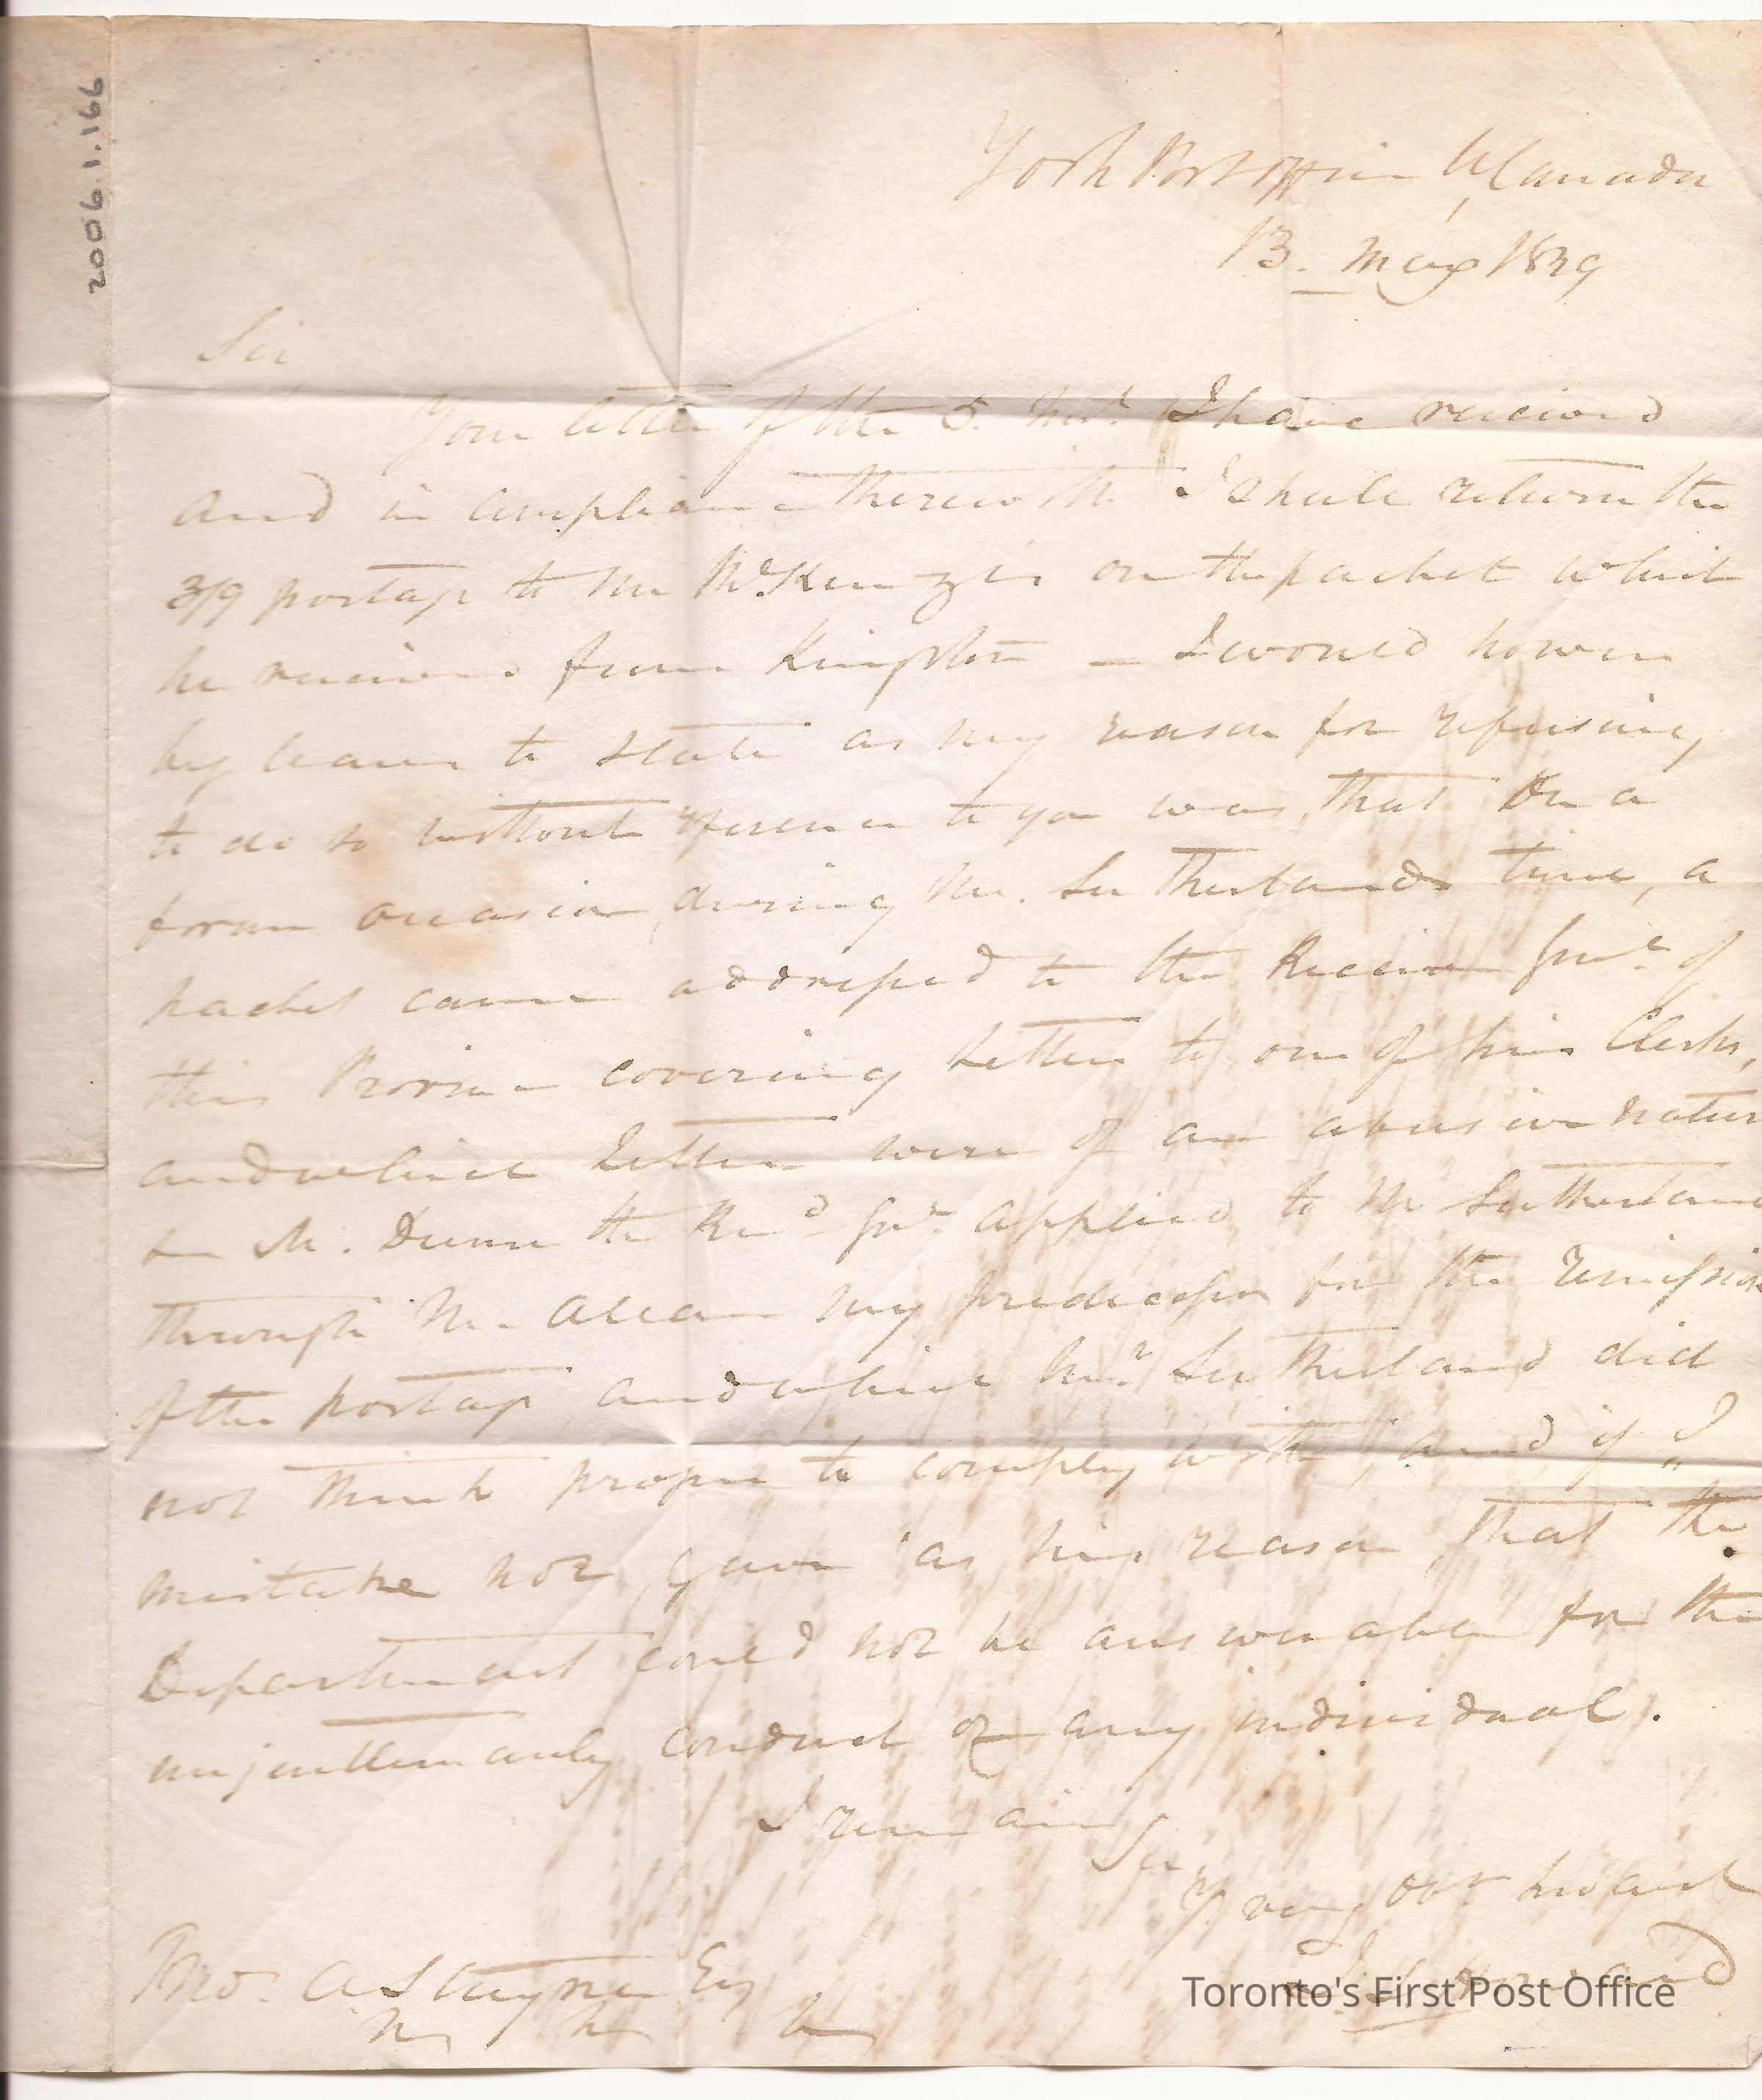 2006.1.166
York Post Office U, Canada
13. May 1829
Sir
Your letter of the 5. Inst. I have received
and in compliance therewith I shall return the
3/9 postage to Mr McKenzie on the packet which
he received from Kingston — I would however
beg leave to state as my reason for refusing,
to do so without reference to you was, that On a
former occasion, during Mr. Sutherlands time, a
packet came addressed to the Receiver Genl. of
this Province covering Letters to one of his Clerks,
and which Letters were of an abusive nature
Mr. Dunn the Genl. applied to Mr Sutherland
through Mr. Allan my predecessor for the remission
of the postage, and which Mr. Sutherland did
not think proper to comply with, and if I
mistake not, gave as his reason, that the
Department could not be answerable for the
unjentlemanly conduct of any individual.
I remain
Sir
Yr very obt servant
J S Howard
Thos. A Stayner Esq
Toronto's First Post Office